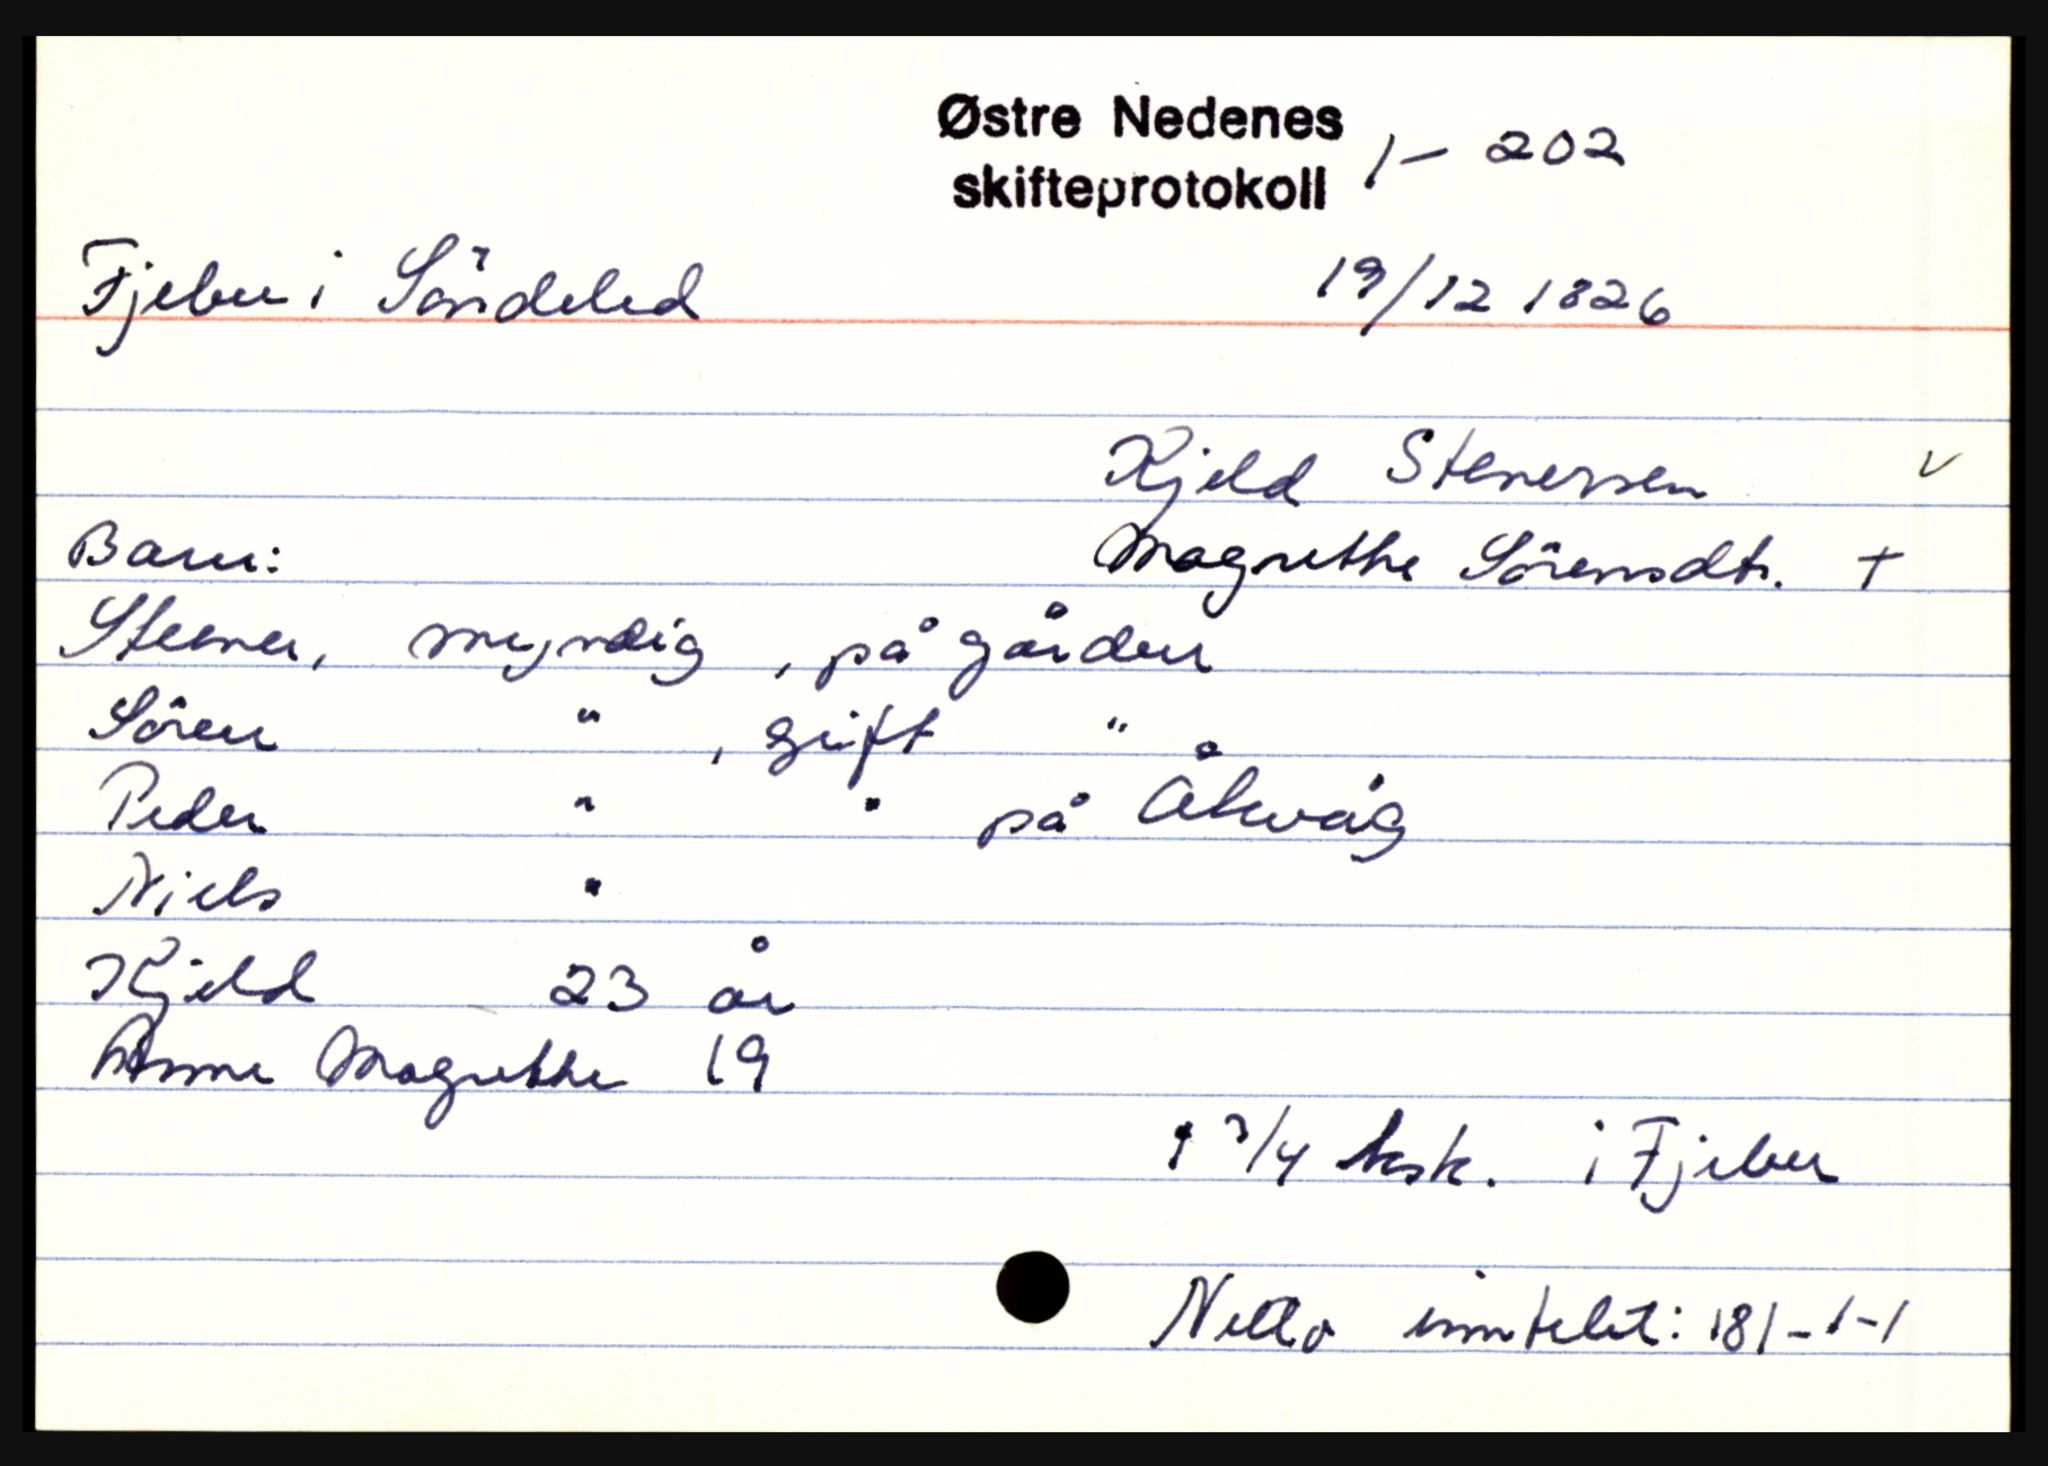 Østre Nedenes
skifteprotokoll 1 – 202
Fjeber i Söndeled 19/12 1826
Kjeld Stenersen v
Barn: Magrethe Sörensdtr. +
Steener, myndig, på gården
Sören " , gift "
Peder " " på Åkvåg
Niels "
Kjeld 23 år
Anne Magrethe 19
1 3/4 ksk. i Fjeber
Netto inntekt: 181-1-1